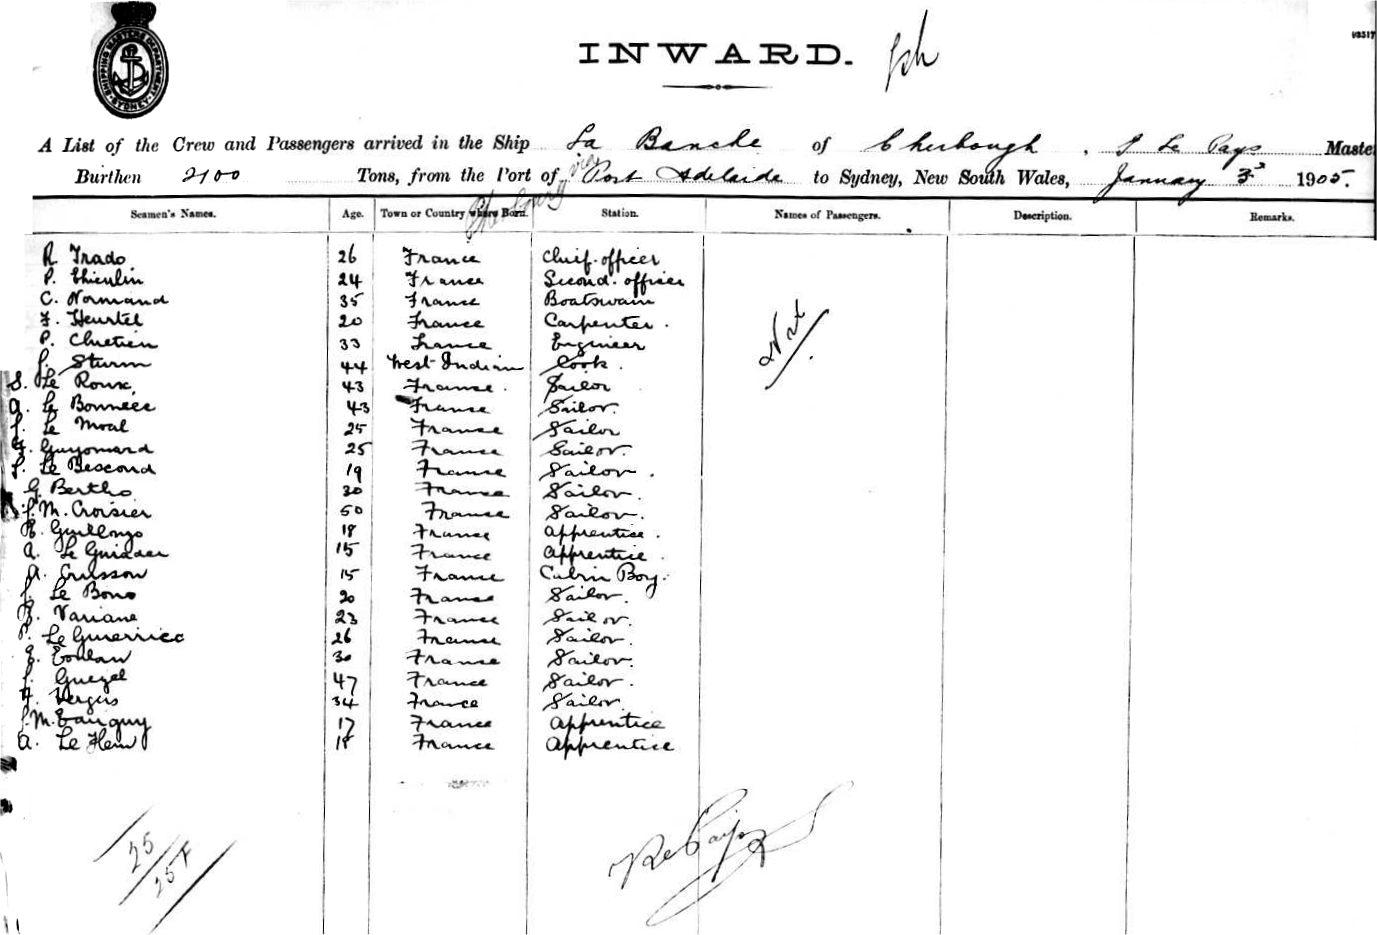 SHIPPING MASTERS DEPARTMENT SYDNEY
INWARD.
A List of the Crew and Passengers arrived in the Ship La Banche of Cherbough, Le Pays Master
Burthen 2100 Tons, from the Port of Cherbourg via Port Adelaide to Sydney, New South Wales, January 3rd 1905.
Seamen's Names. Age. Town or Country where Born. Station. Names of Passengers. Description. Remarks.
R Trado 26 France Chief officer
P. Thieulin 24 France Second officer
C. Normand 35 France Boatswain
F. Heurtel 20 France Carpenter.
P. Chretien 33 France Engineer
Sturm 44 West Indian Cook.
S. Le Roux 43 France. Sailor
a. Le Bonniec 43 France Sailor.
Le Moal 25 France Sailor
Guyomard 25 France Sailor.
Le Bescond 19 France Sailor.
G Bertho 30 France Sailor.
M. Croisier 50 France Sailor.
18 France Apprentice.
a. Le Guiader 15 France Apprentice.
15 France Cabin Boy.
Le Bono 20 France Sailor.
Variane 23 France Sailor.
P. Le Guerrico 26 France Sailor.
30 France Sailor.
Guezel 47 France Sailor.
Vergis 34 France Sailor.
M. Tanguy 17 France Apprentice
a. Le Hen 18 France Apprentice
25
25